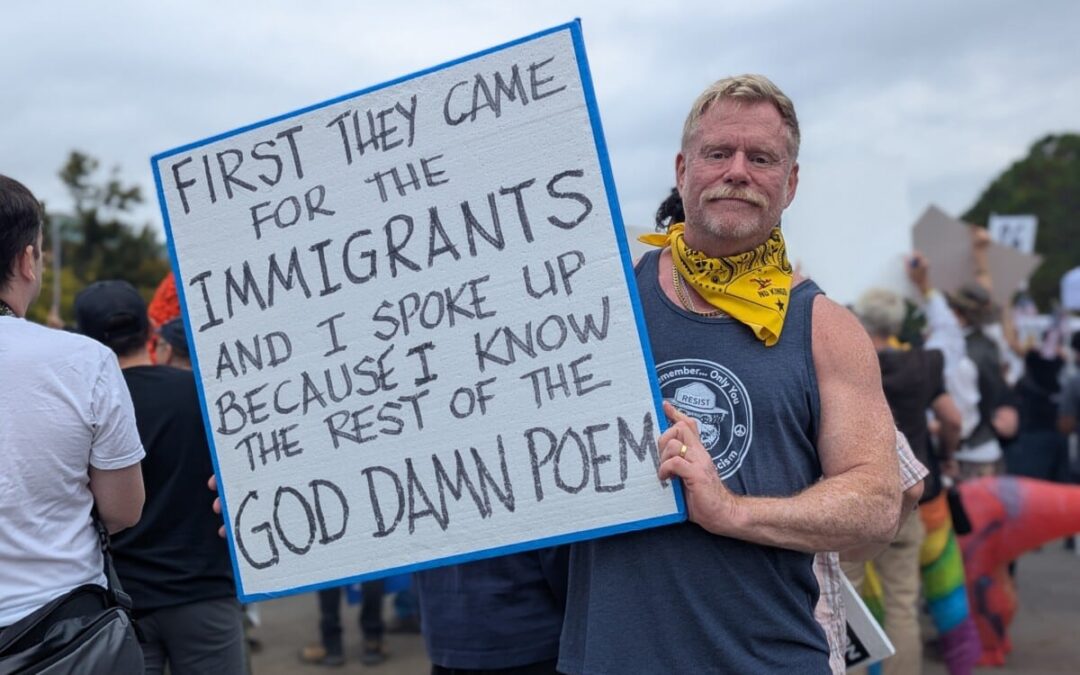 FIRST THEY CAME
FOR THE
IMMIGRANTS
AND I SPOKE UP
BECAUSE I KNOW
THE REST OF THE
GOD DAMN POEM
NO KINGS
Remember... Only You
RESIST